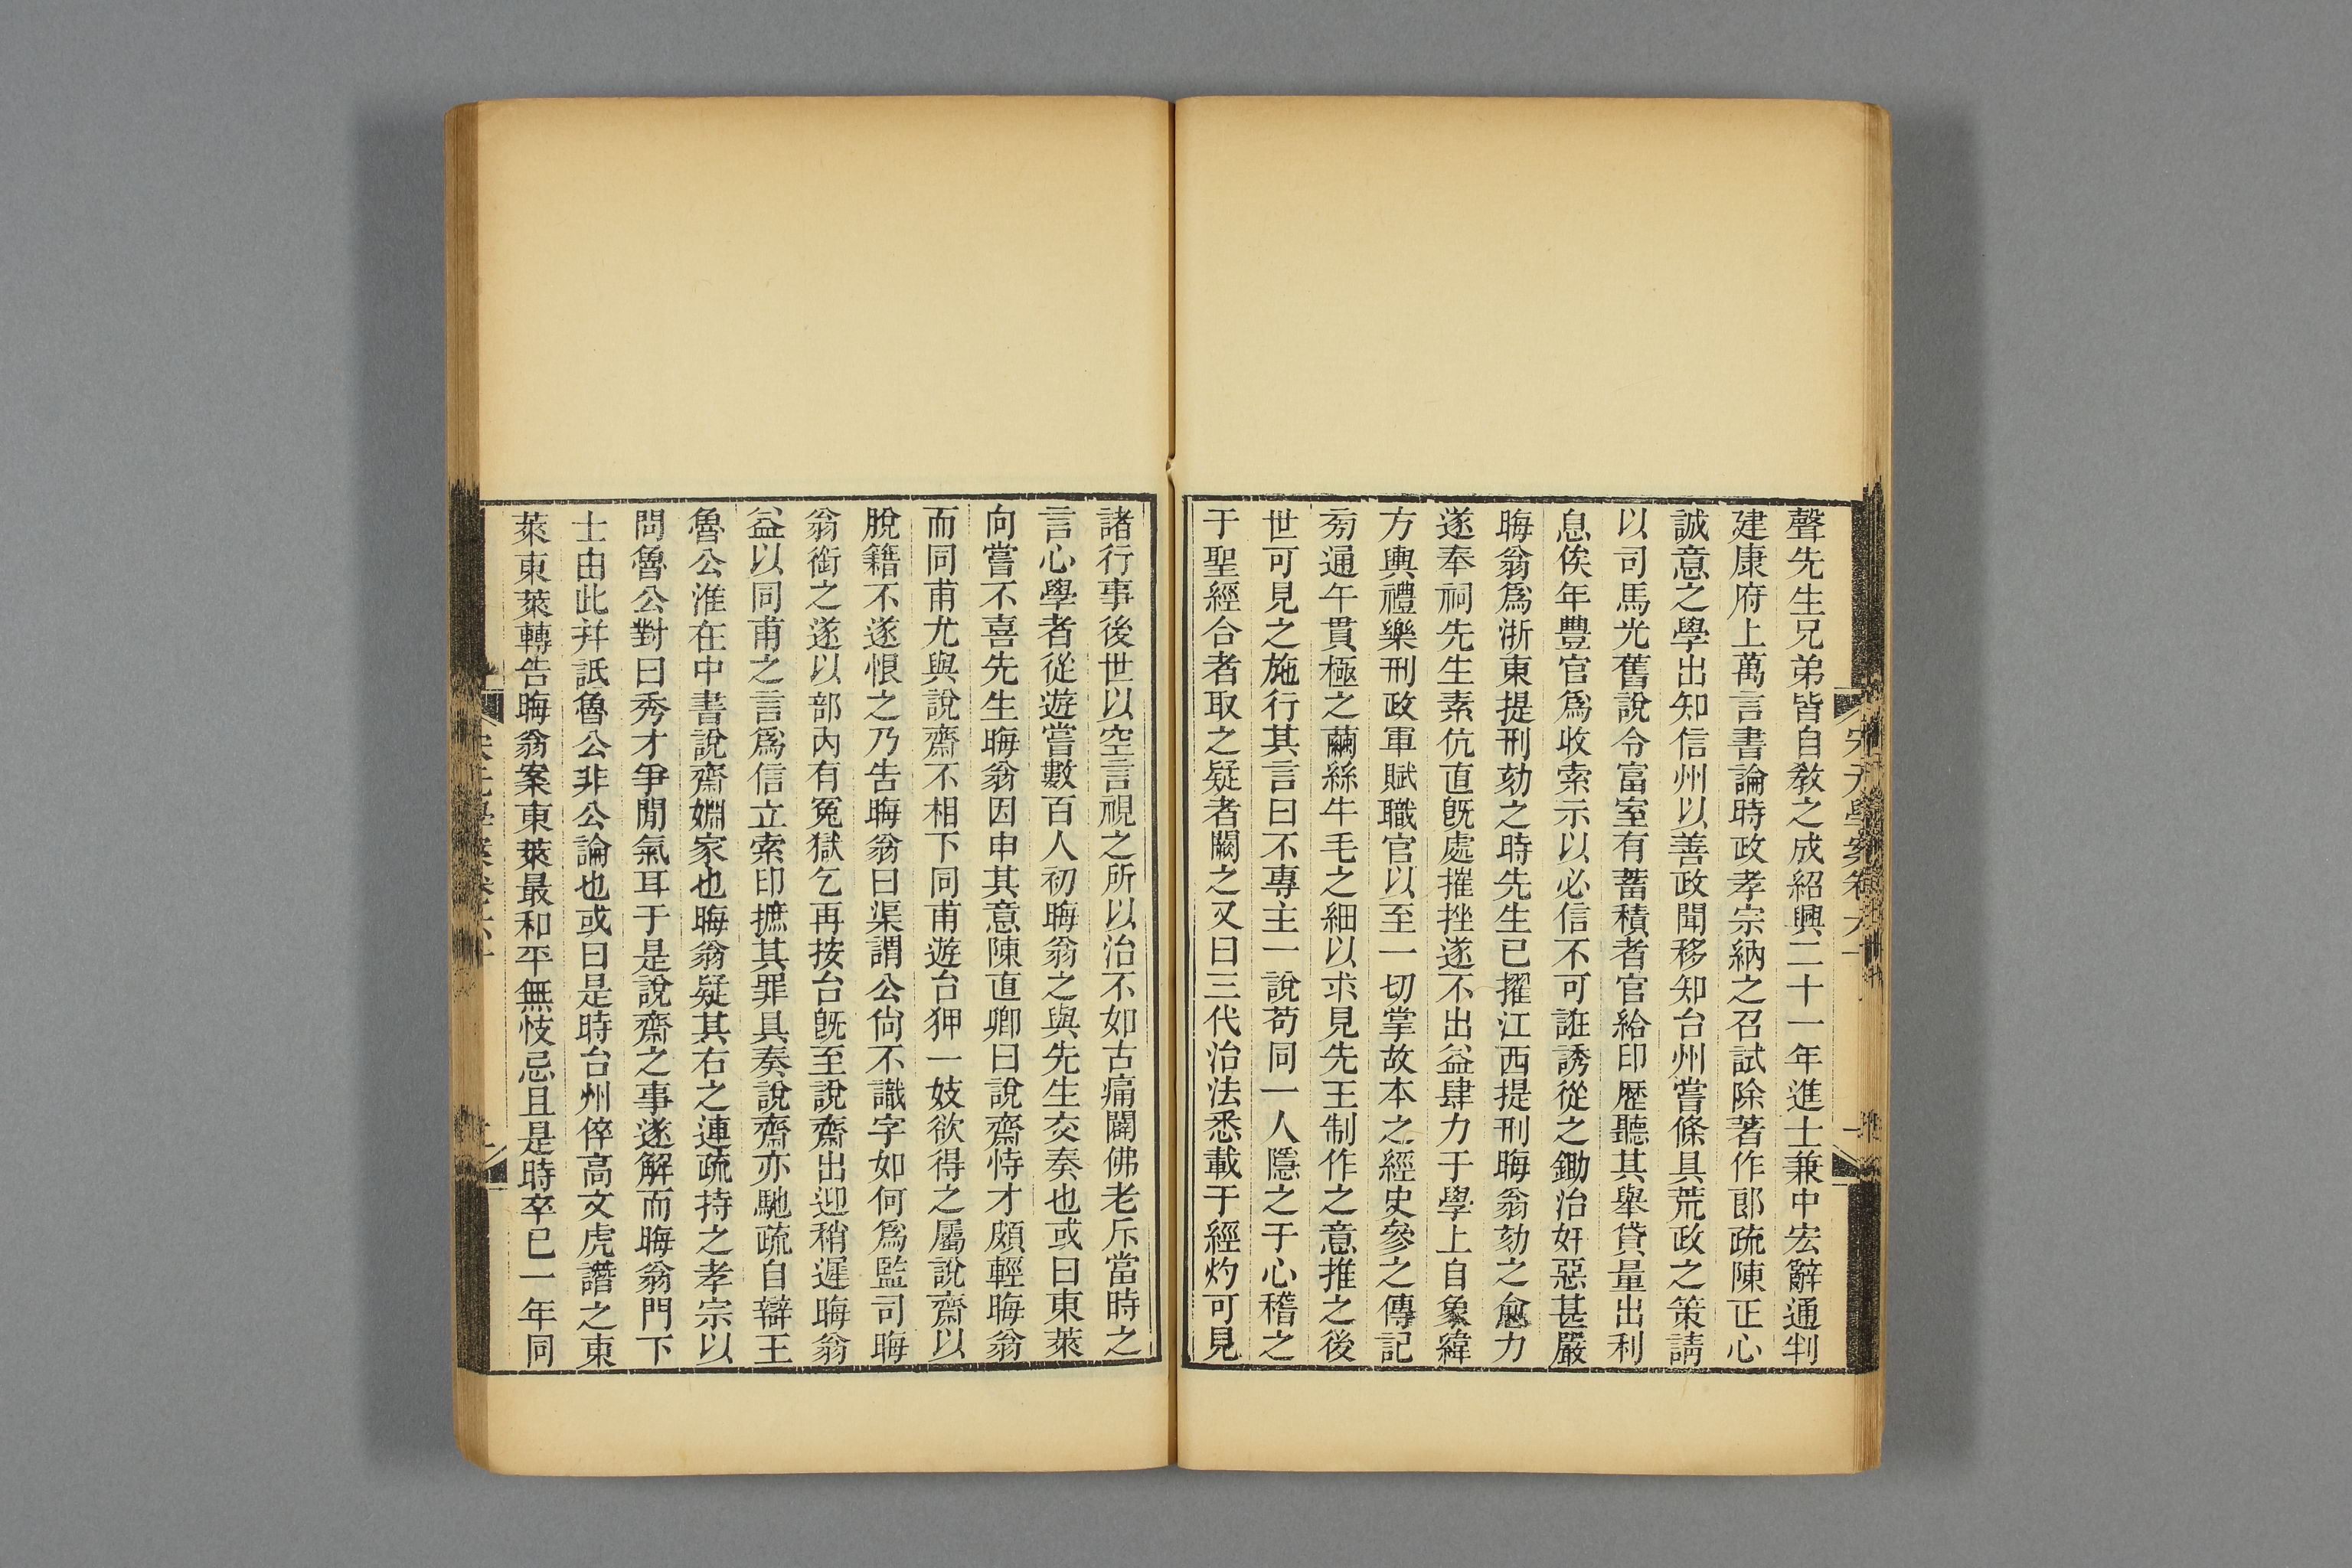 聲先生兄弟皆自教之成紹興二十一年進士兼中宏辭通判
建康府上萬言書論時政孝宗納之召試除著作郎疏陳正心
誠意之學出知信州以善政聞移知台州嘗條具荒政之策請
以司馬光舊說令富室有蓄積者官給印歷聽其舉貸量出利
息俟年豐官爲收索示以必信不可誑誘從之鋤治奸惡甚嚴
晦翁爲浙東提刑劾之時先生已擢江西提刑晦翁劾之愈力
遂奉祠先生素伉直旣處摧挫遂不出益肆力于學上自象緯
方輿禮樂刑政軍賦職官以至一切掌故本之經史參之傳記
旁通午貫極之繭絲牛毛之細以求見先王制作之意推之後
世可見之施行其言曰不專主一說苟同一人隱之于心稽之
于聖經合者取之疑者闕之又曰三代治法悉載于經灼可見
諸行事後世以空言視之所以治不如古痛闢佛老斥當時之
言心學者從遊嘗數百人初晦翁之與先生交奏也或曰東萊
向嘗不喜先生晦翁因申其意陳直卿曰說齋恃才頗輕晦翁
而同甫尤與說齋不相下同甫遊台狎一妓欲得之屬說齋以
脫籍不遂恨之乃告晦翁曰渠謂公尙不識字如何爲監司晦
翁銜之遂以部內有冤獄乞再按台旣至說齋出迎稍遲晦翁
益以同甫之言爲信立索印摭其罪具奏說齋亦馳疏自辯王
魯公淮在中書說齋姻家也晦翁疑其右之連疏持之孝宗以
問魯公對曰秀才爭閒氣耳于是說齋之事遂解而晦翁門下
士由此幷詆魯公非公論也或曰是時台州倅高文虎譖之東
萊東萊轉告晦翁案東萊最和平無忮忌且是時卒已一年同